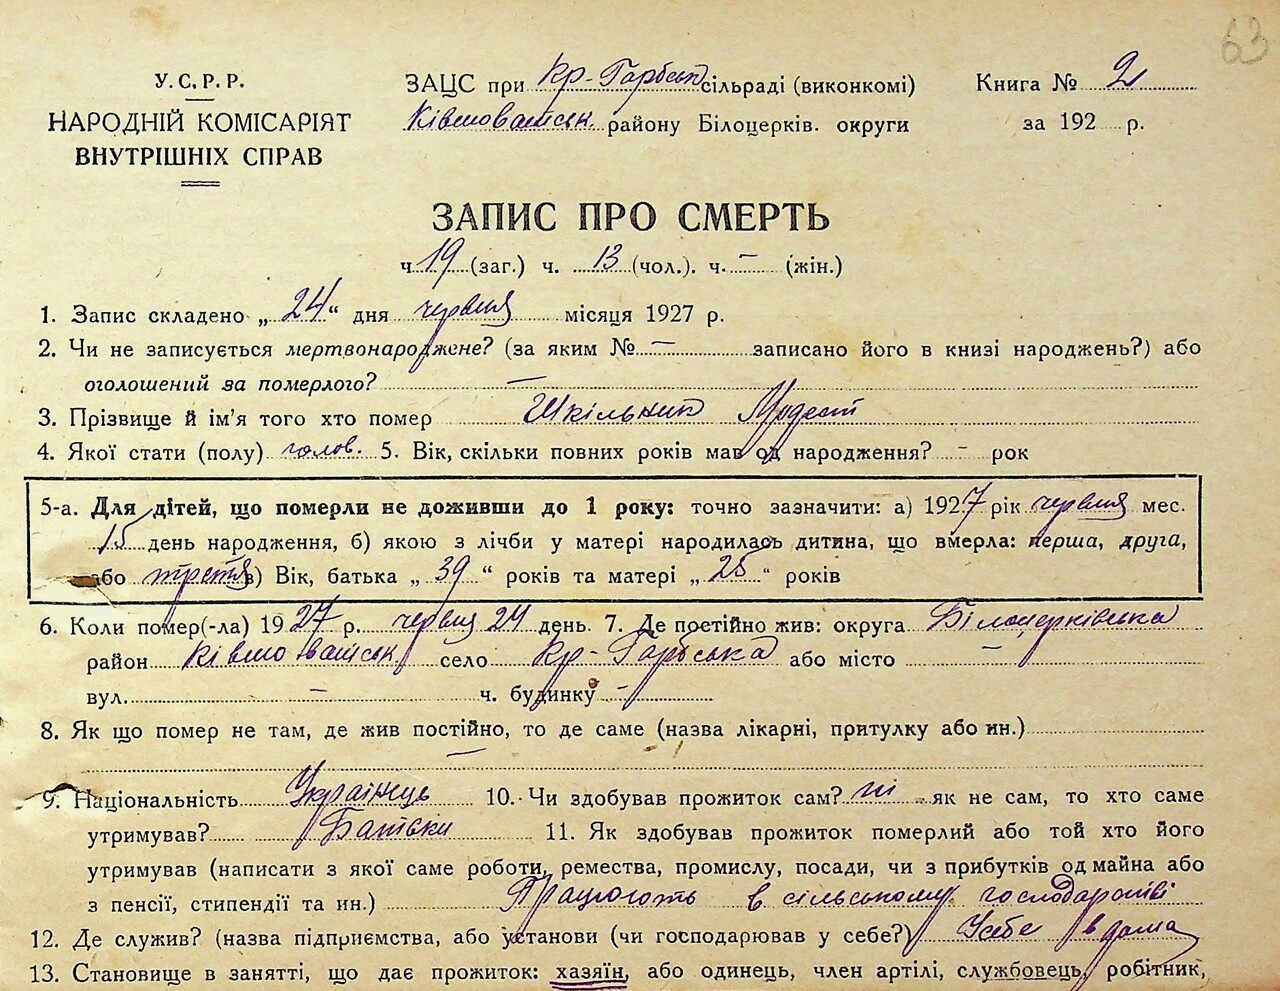 63
У.С.Р.Р.
НАРОДНІЙ КОМІСАРІЯТ
ВНУТРІШНІХ СПРАВ
ЗАЦС при Кр-Гарбськ сільраді (виконкомі)
Ківшоватськ району Білоцерків. округи
Книга № 2
за 192 р.
ЗАПИС ПРО СМЕРТЬ
ч. 19 (заг.) ч. 13 (чол.). ч. - (жін.)
1. Запис складено „ 24 “ дня червня місяця 1927 р.
2. Чи не записується мертвонароджене? (за яким № — записано його в книзі народжень?) або
оголошений за померлого? —
3. Прізвище й ім'я того хто помер Шкільник Модест
4. Якої стати (полу) чолов. 5. Вік, скільки повних років мав од народження? - рок
5-а. Для дітей, що померли не доживши до 1 року: точно зазначити: а) 1927 рік червня мес.
15 день народження, б) якою з лічби у матері народилась дитина, що вмерла: перша, друга,
або третя в) Вік, батька „ 39 “ років та матері „ 25 “ років
6. Коли помер(-ла) 1927 р. червня 24 день. 7. Де постійно жив: округа Білоцерківська
район Ківшоватськ село Кр-Гарбська або місто —
вул. — ч. будинку —
8. Як що помер не там, де жив постійно, то де саме (назва лікарні, притулку або ин.)
—
9. Національність Українець 10. Чи здобував прожиток сам? ні як не сам, то хто саме
утримував? Батьки 11. Як здобував прожиток померлий або той хто його
утримував (написати з якої саме роботи, ремества, промислу, посади, чи з прибутків од майна або
з пенсії, стипендії та ин.) Працюють в сільському господарстві
12. Де служив? (назва підприємства, або установи (чи господарював у себе?) У себе в дома
13. Становище в занятті, що дає прожиток: хазяїн, або одинець, член артілі, службовець, робітник,